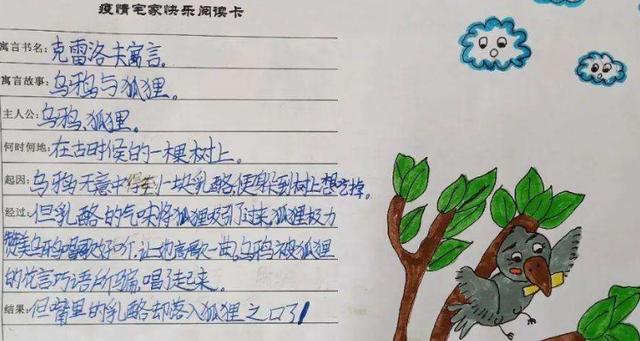 疫情宅家快乐阅读卡
寓言书名:克雷洛夫寓言。
寓言故事:乌鸦与狐狸。
主人公:乌鸦、狐狸。
何时何地:在古时候的一棵树上。
起因:乌鸦无意中得到一块乳酪,便躲到树上想吃掉。
经过:但乳酪的气味将狐狸吸引了过来,狐狸极力
赞美乌鸦唱歌好听,让他高歌一曲,乌鸦被狐狸
的花言巧语所骗,唱了起来。
结果:但嘴里的乳酪却落入狐狸之口了!